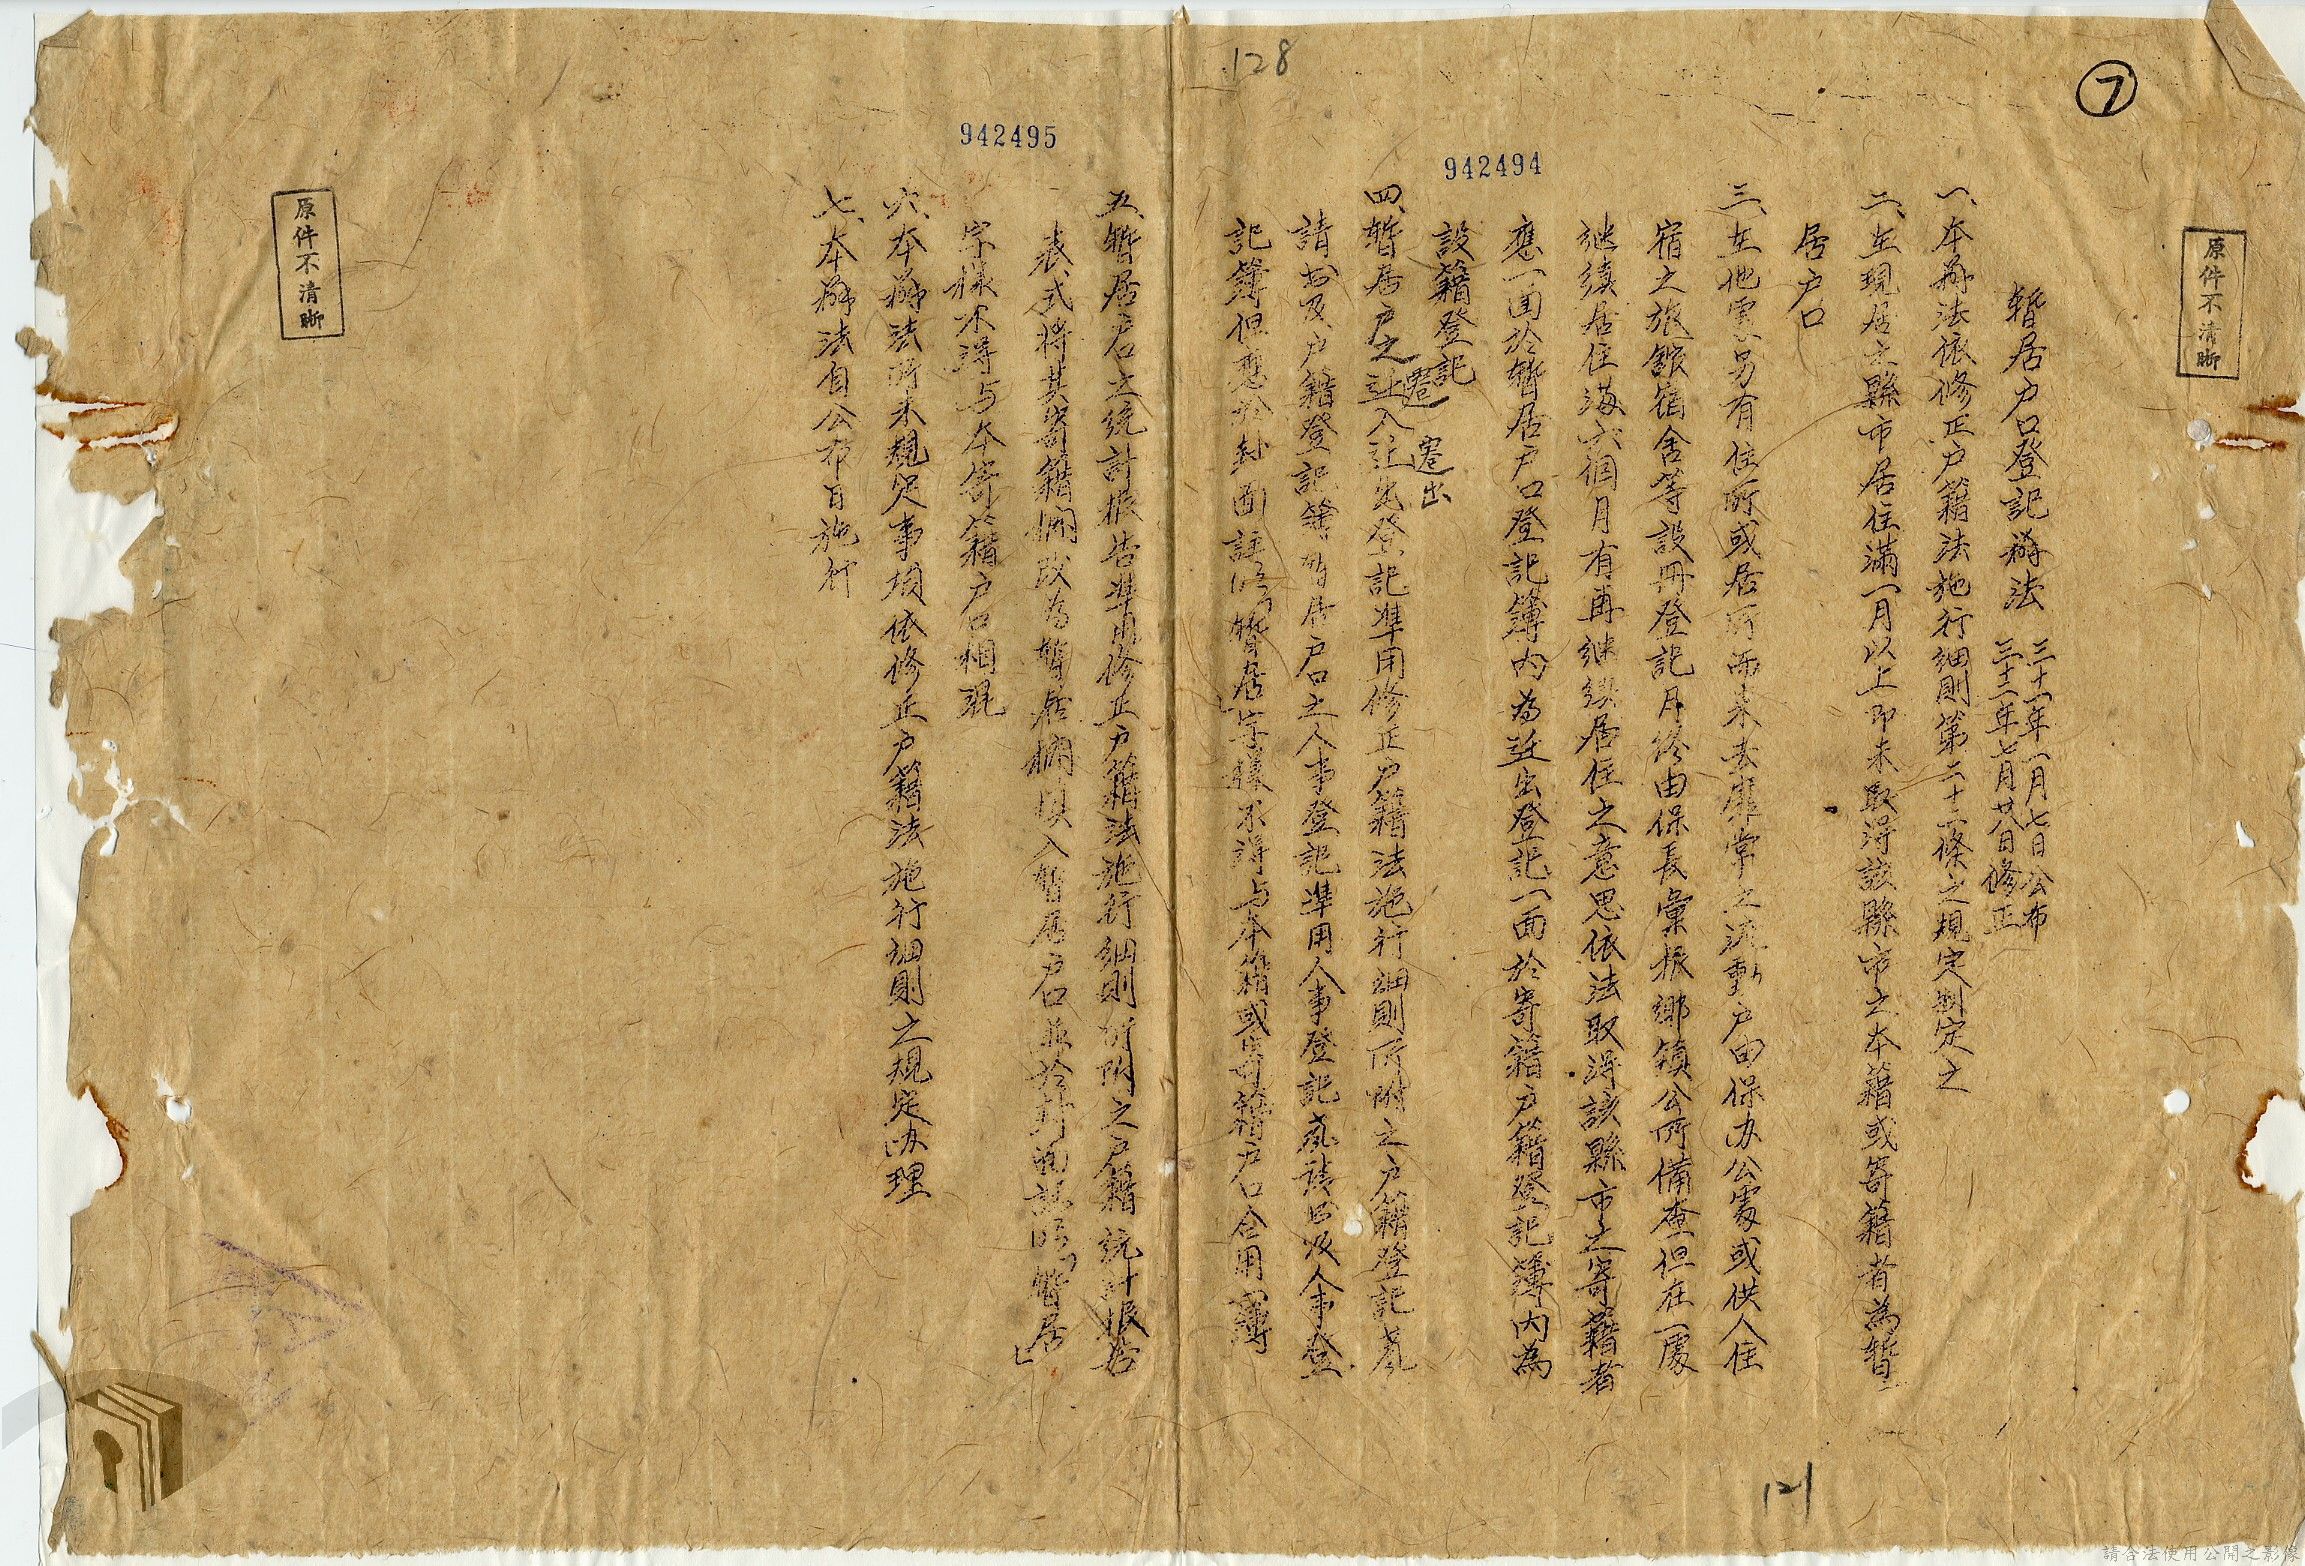 ⑦
原件不清晰
暫居户口登記辦法
三十一年一月七日公布
三十二年七月廿八日修正
一、本辦法依修正户籍法施行細則第二十二條之規定制定之
二、在現居之縣市居住滿一月以上即未取得該縣市之本籍或寄籍者為暫
居户口
三、在他處另有住所或居所而來去靡常之流動户由保办公處或供人住
宿之旅館宿舍等設冊登記月終由保長彙报鄉鎮公所備查但在一處
继續居住滿六個月有再继續居住之意思依法取得該縣市之寄籍者
應一面於暫居户口登記簿內為迁出登記一面於寄籍户籍登記簿內為
設籍登記
遷 遷出
四、暫居户之迁入迁出登記準用修正户籍法施行細則所附之户籍登記声
請书及户籍登記簿暫居户口之人事登記準用人事登記声請书及人事登
記簿但應於封面註明「暫居」字樣不得与本籍或寄籍户口合用一簿
942494
128
五、暫居户口之統計报告準用修正户籍法施行細則所附之户籍統計报告
表式將其寄籍欄改為暫居欄填入暫居户口並於封面註明「暫居」
字樣不得与本寄籍户口相混
六、本辦法所未規定事項依修正户籍法施行細則之規定办理
七、本辦法自公布日施行
942495
原件不清晰
121
請合法使用公開之影像